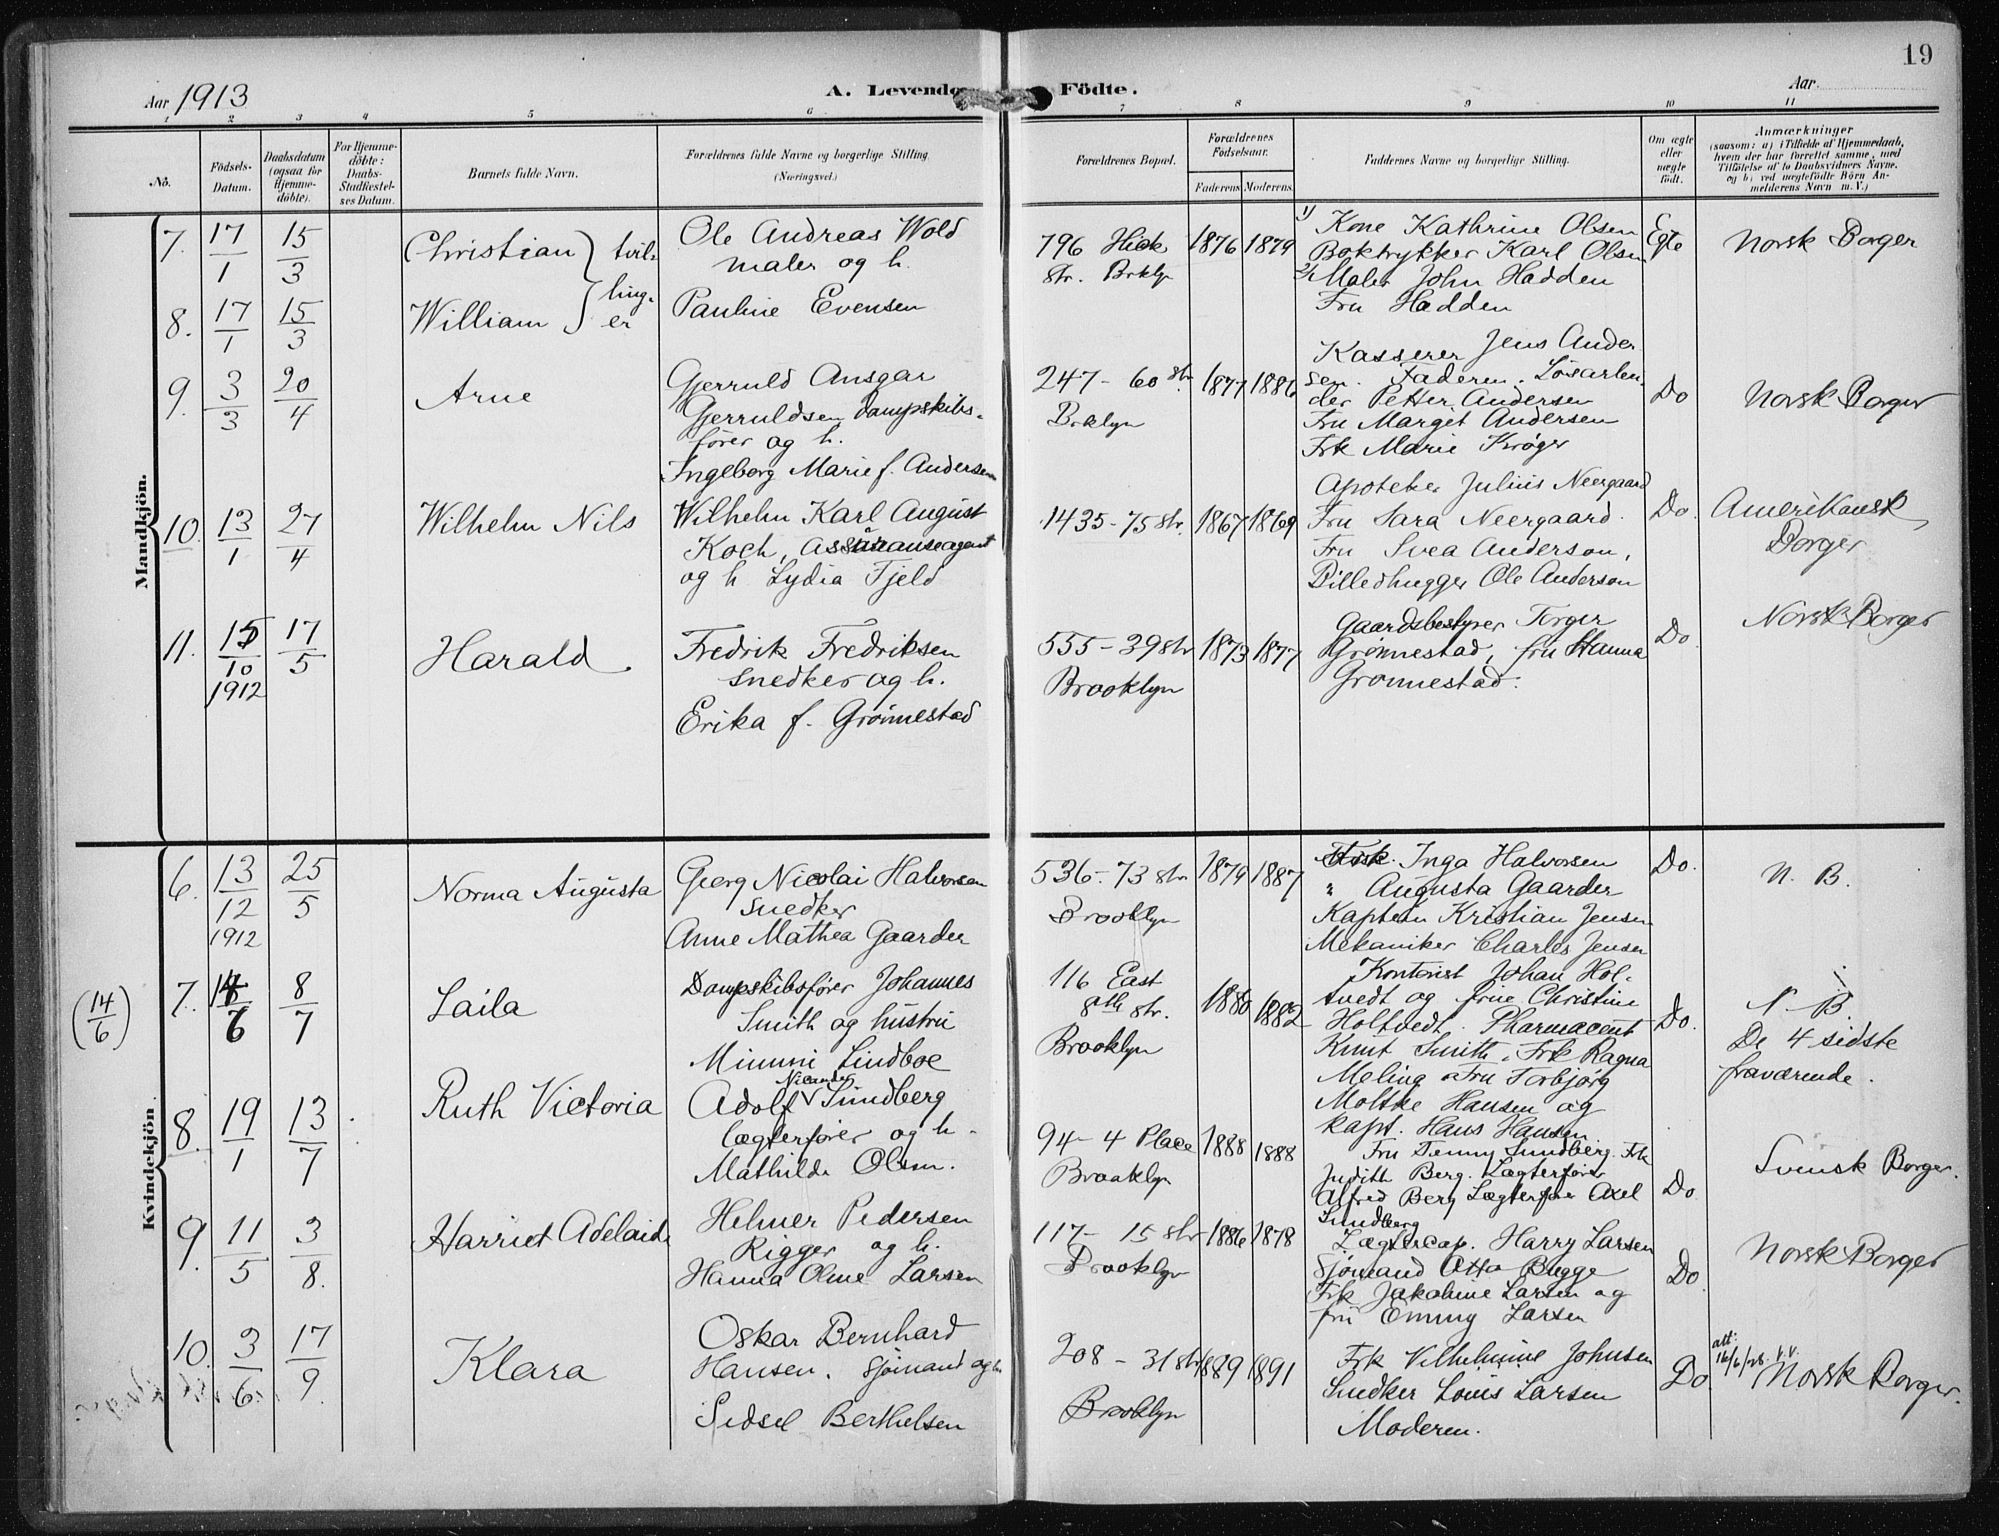 19
Aar 1913
A. Levende Födte.
Aar
1 2 3 4 5 6 7 8 9 10 11
No.
Födsels-Datum.
Daabsdatum (ogsaa for Hjemmedöbte).
For Hjemmedöbte: Daabs-Stadfæstelses Datum.
Barnets fulde Navn.
Forældrenes fulde Navne og borgerlige Stilling (Næringsvei.)
Forældrenes Bopæl.
Forældrenes Födselsaar.
Faderens. Moderens.
Faddernes Navne og borgerlige Stilling.
Om ægte eller uægte födt.
Anmærkninger
(saasom: a) i Tilfælde af Hjemmedaab, hvem der har forrettet samme, med Tilföielse af to Daabsvidners Navne. og b) ved uægtefödte Börn Anmelderens Navn m. V.)
Mandkjön.
7. 17/1 15/3 Christian } tvil-
8. 17/1 15/3 William } ling-er
Ole Andreas Wold
maler og h.
Pauline Evensen
796 Hick
str. Brklyn
1876 1879
1) Kone Kathrine Olsen
Boktrykker Karl Olsen
2) Maler John Hadden
Fru Hadden
Egte
Norsk Borger
9. 3/3 20/4 Arne
Gjerruld Ansgar
Gjerruldsen Dampskibs-
fører og h.
Ingeborg Marie f. Andersen
247 - 60 str.
Brklyn
1877 1886
Kasserer Jens Ander
sen. Faderen. Løsarbei-
der Petter Andersen
Fru Margit Andersen
Frk Marie Krøger
Do
Norsk Borger
10. 13/1 27/4 Wilhelm Nils
Wilhelm Karl August
Koch, assuranseagent
og h. Lydia Fjeld
1435 - 75 str.
1867 1869
Apoteker Julius Neergaard
Fru Sara Neergaard.
Fru Svea Anderson,
Billedhugger Ole Anderson
Do.
Amerikansk
Borger
11. 15/10 1912 17/5 Harald
Fredrik Fredriksen
snedker og h.
Erika f. Grønnestad
555 - 39 str
Brooklyn
1873 1877
Gaardsbestyrer Torger
Grønnestad, fru Hanna
Grønnestad.
Do.
Norsk Borger
Kvindekjön
6. 13/12 1912 25/5 Norma Augusta
Georg Nicolai Halvorsen
Snedker
Anne Mathea Gaarder
536 - 73 str
Brooklyn
1879 1887
Inga Halvorsen
" Augusta Gaarder
Kaptein Kristian Jensen
Mekaniker Charles Jensen
Do.
N. B.
(14/6) 7. 14/6 8/7 Laila
Dampskibsfører Johannes
Smith og hustru
Mimmi Lindboe
116 East
8th str.
Brooklyn
1880 1882
Kontorist Johan Hol-
tvedt og frue Christine
Holtvedt. Pharmaceut
Knut Smith, Frk Ragna
Meling, Fru Torbjørg
Moltke Hansen og
kapt. Hans Hansen
Do.
N. B.
De 4 sidste
fraværende.
8. 19/1 13/7 Ruth Victoria
Adolf Nicander Sundberg
lægterfører og h.
Mathilde Olsen.
94 - 4 Place
Brooklyn
1888 1888
Fru Jenny Sundberg. Frk
Judith Berg. Lægterfører
Alfred Berg Lægterfører Axel
Sundberg
Do
Svensk Borger.
9. 11/5 3/8. Harriet Adelaide
Helmer Pedersen
Rigger og h.
Hanna Oline Larsen
117 - 15 str
Brooklyn
1886 1878
Lægtercap. Harry Larsen
Sjømand Otto Bugge
Frk Jakobine Larsen og
fru Emmy Larsen
Do
Norsk Borger
10. 3/6 17/9 Klara
Oskar Bernhard
Hansen, sjømand og h.
Sidsel Berthelsen
208 - 31 str
Brooklyn
1889 1891
Frk Vilhelmine Johnsen
Snedker Louis Larsen
Moderen.
Do.
att: 16/6/28. V.V.
Norsk Borger.